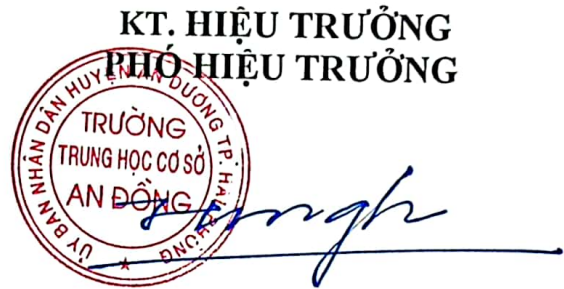 KT. HIỆU TRƯỞNG
PHÓ HIỆU TRƯỞNG
ỦY BAN NHÂN DÂN HUYỆN AN DƯƠNG TP. HẢI PHÒNG
TRƯỜNG
TRUNG HỌC CƠ SỞ
AN ĐỒNG